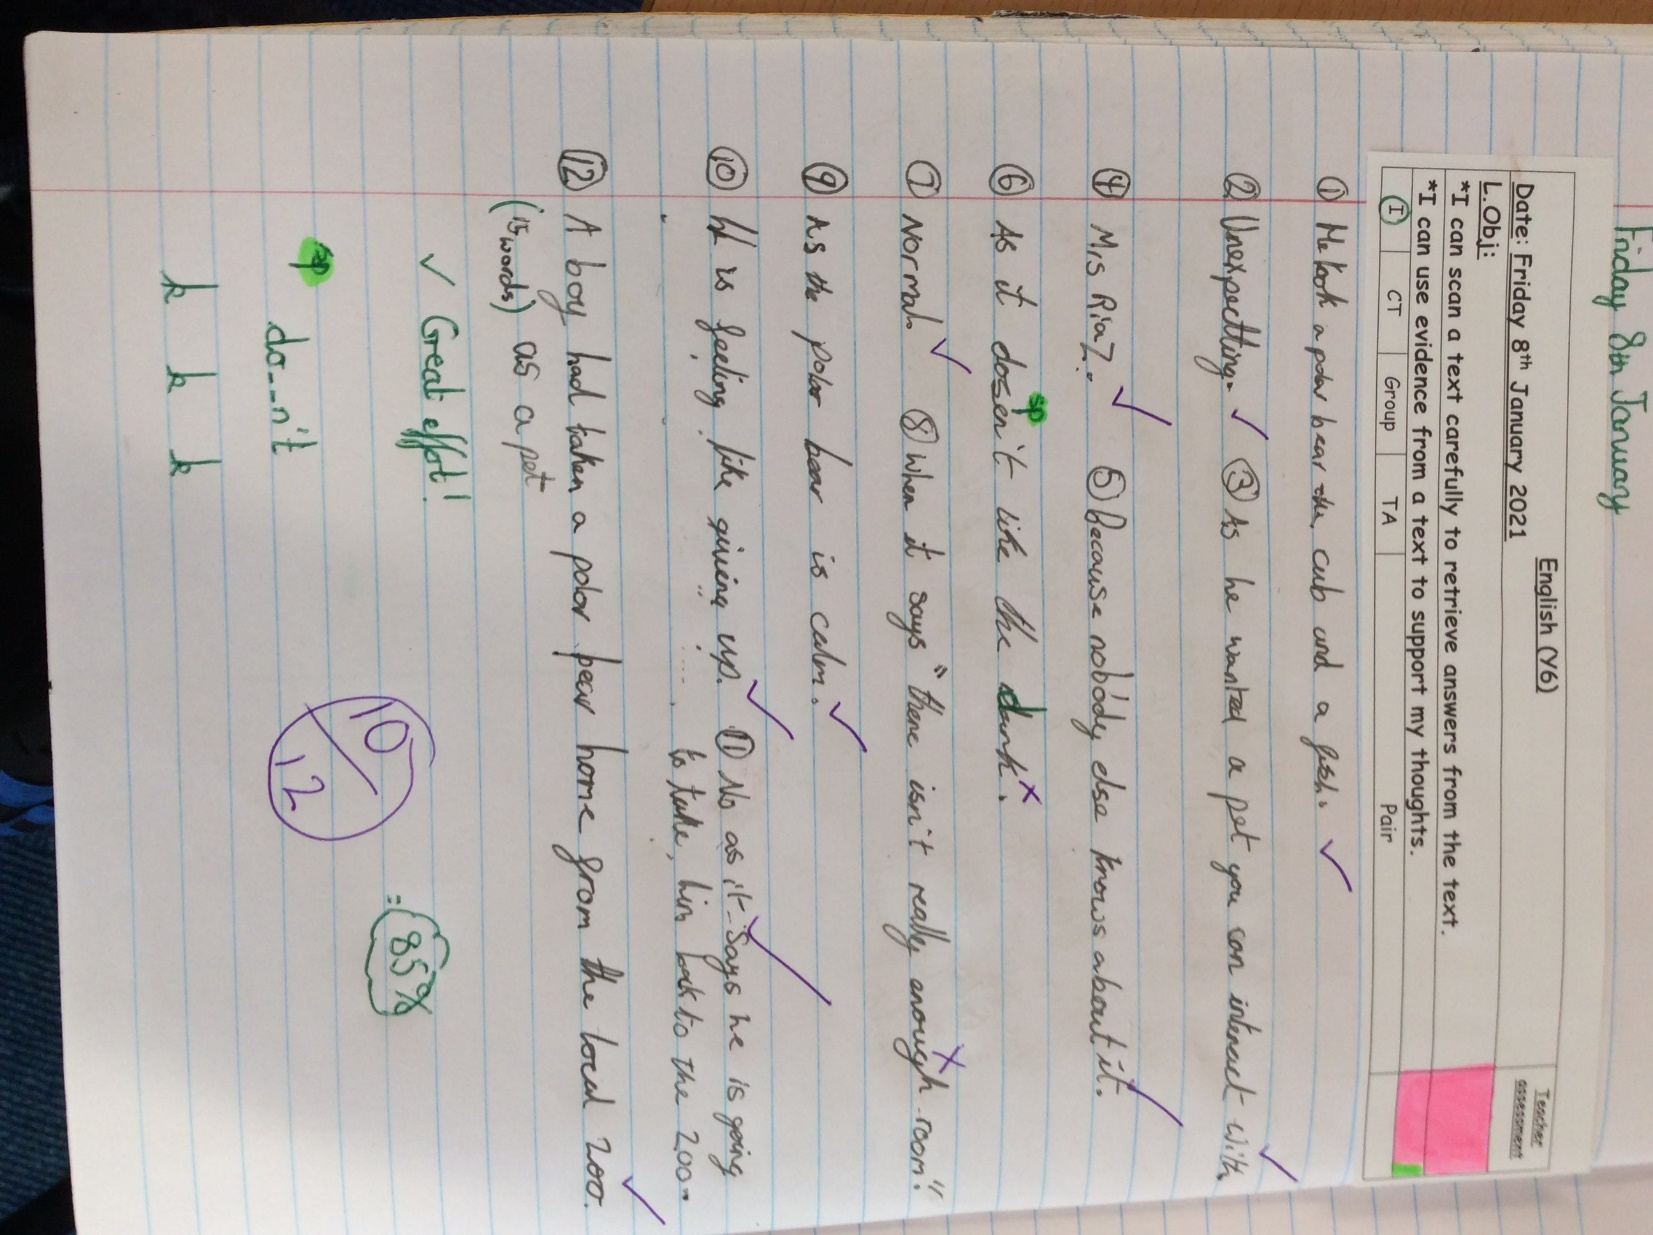 Friday 8th January
English (Y6)
Date: Friday 8th January 2021
Teacher assessment
L.Obj:
*I can scan a text carefully to retrieve answers from the text.
*I can use evidence from a text to support my thoughts.
I CT Group TA Pair
① He took a polar bear cub and a fish.
② Unexpectting. ③ As he wanted a pet you can interact with
④ Mrs Riaz. ⑤ Because nobody else knows about it.
sp
⑥ As it dosen't like the dark.
⑦ Normal. ⑧ When it says "there isn't really enough room."
⑨ As the polar bear is calm.
⑩ He is feeling like giving up. ⑪ No as it says he is going
to take him back to the zoo.
⑫ A boy had taken a polar pear home from the local zoo.
(15 words) as a pet
✓ Great effort!
= 85%
sp
do__n't
10/12
k k k